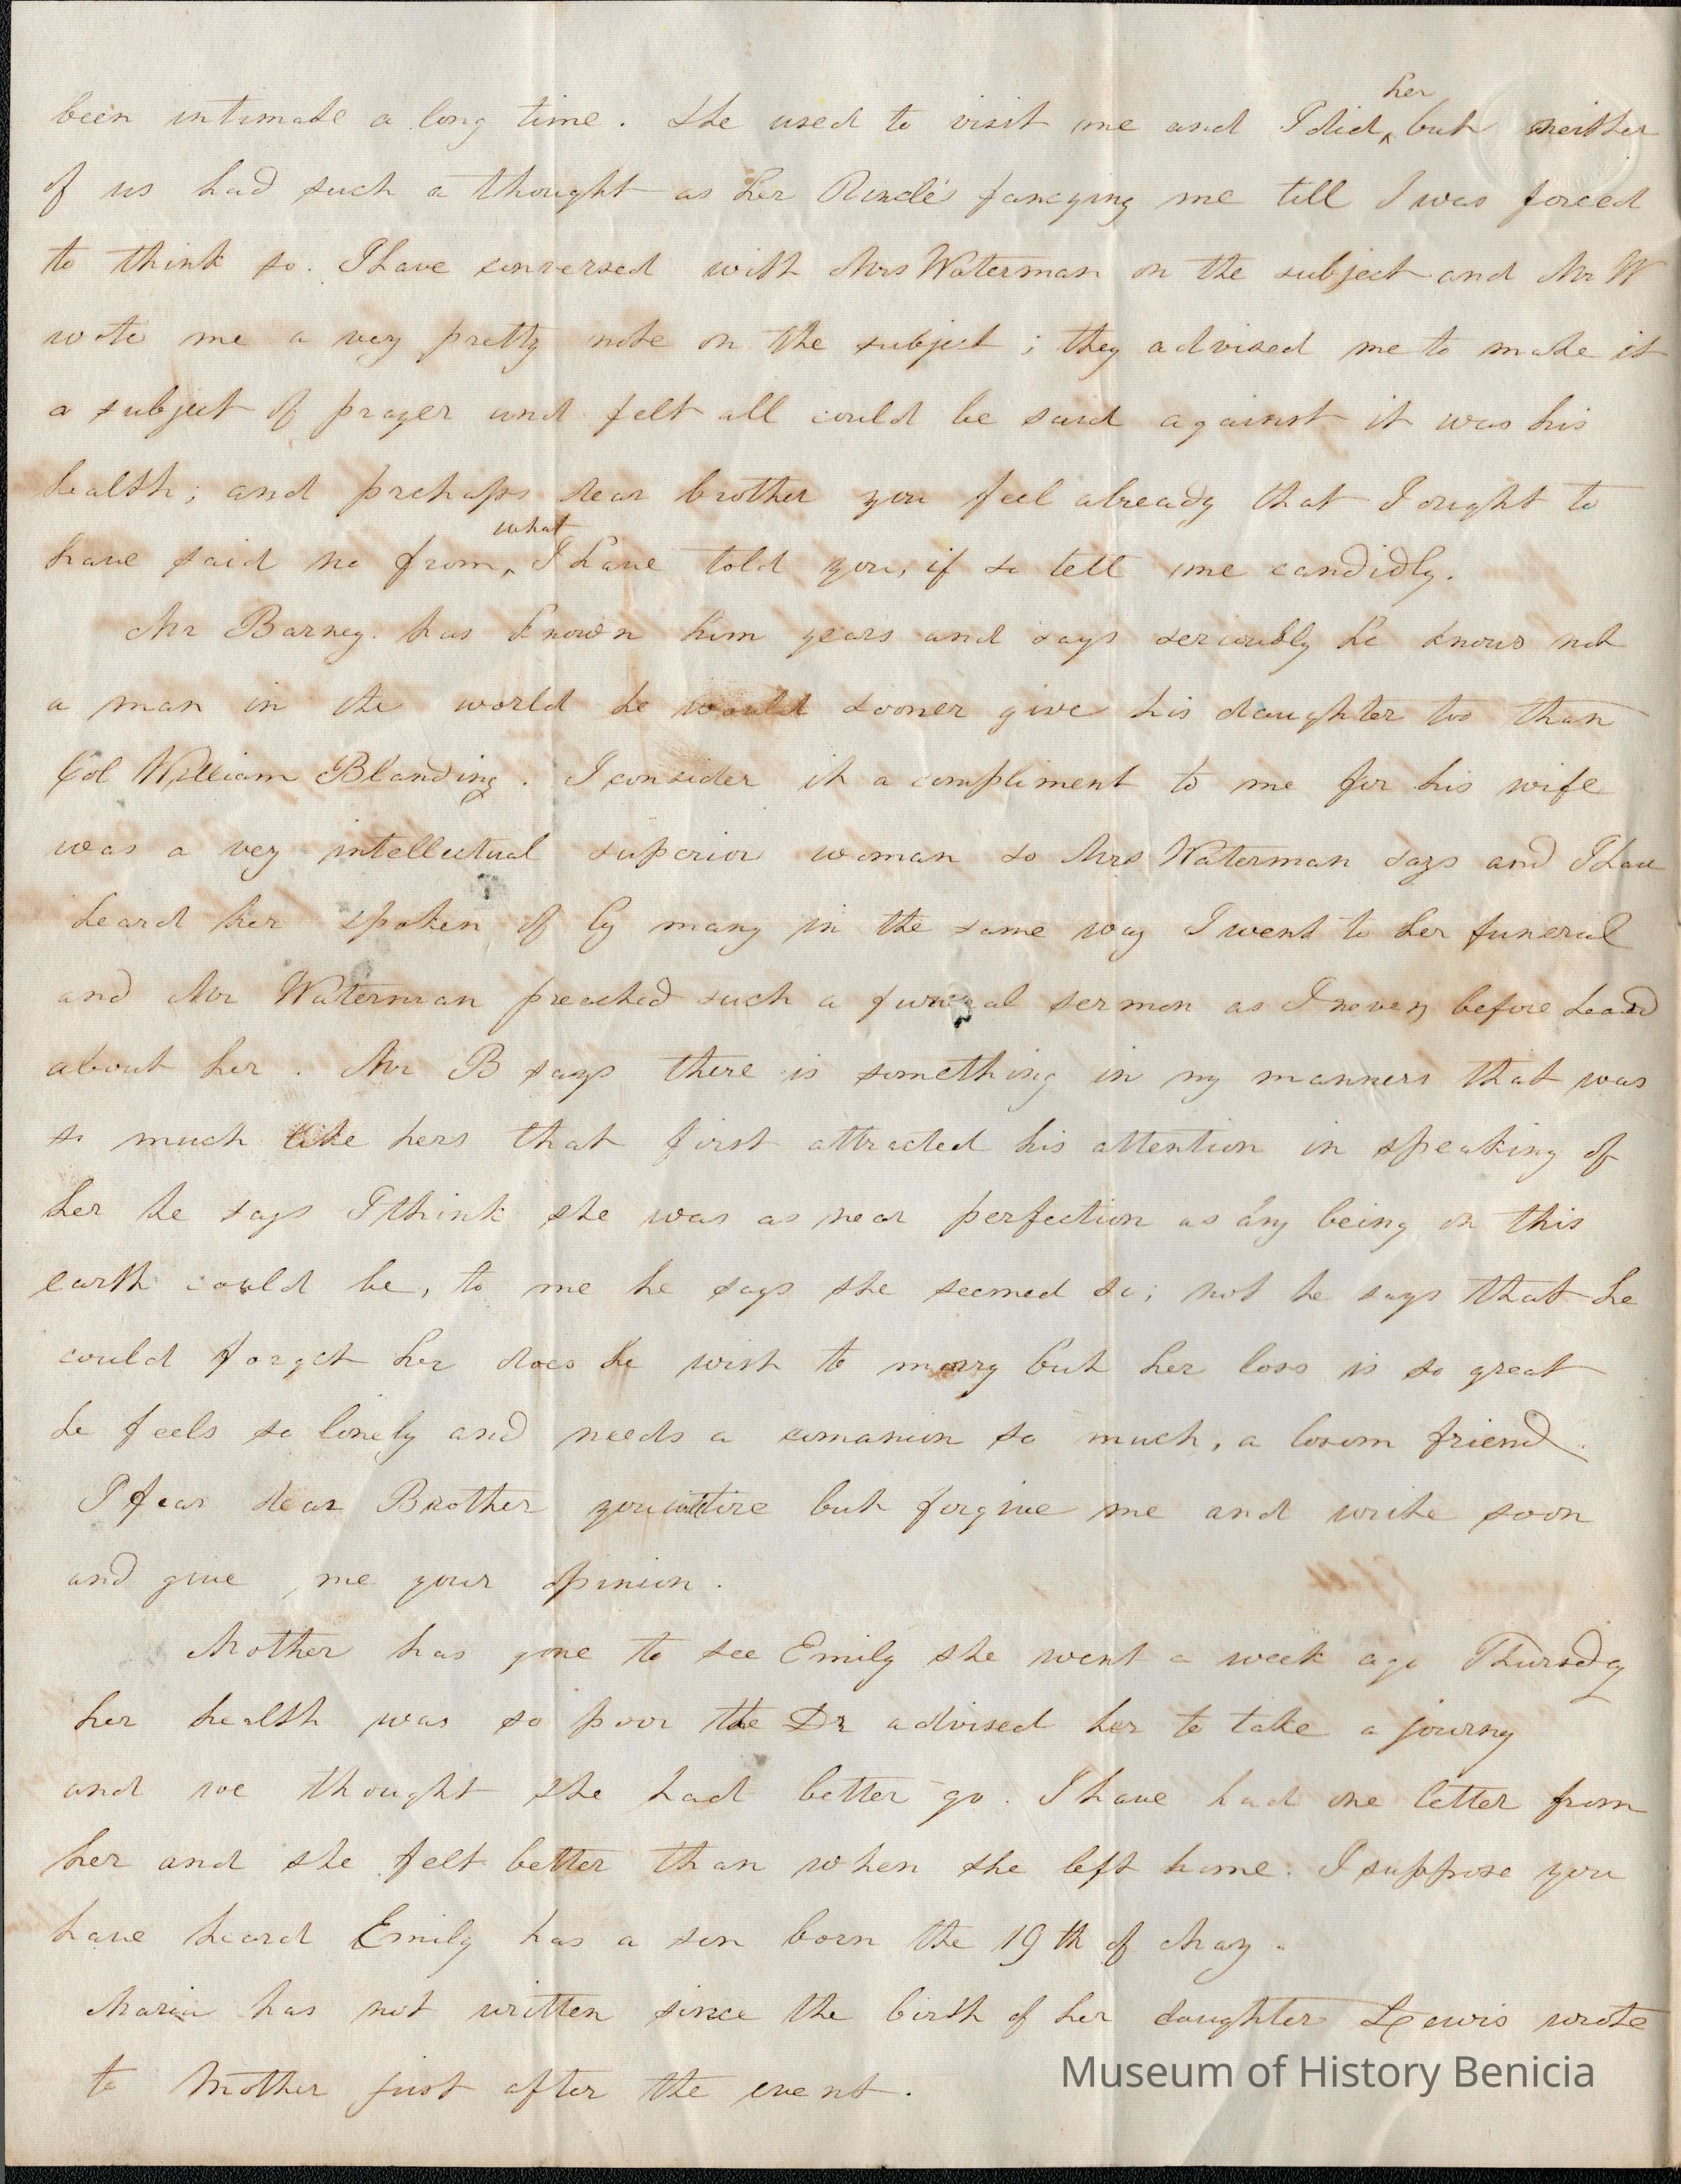 been intimate a long time. She used to visit me and I did ^her but neither
of us had such a thought as her Uncle's fancying me till I was forced
to think so. I have conversed with Mrs Waterman on the subject and Mr W
wote me a very pretty note on the subject; they advised me to make it
a subject of prayer and felt all could be said against it was his
health; and prehaps dear brother you feel already that I ought to
have said no from ^what I have told you, if so tell me candidly.
Mr Barney. has known him years and says seriously he knows not
a man in the world he would sooner give his daughter too than
Col William Blanding. I consider it a compliment to me for his wife
was a very intellectual superior woman so Mrs Waterman says and I have
heard her spoken of by many in the same way I went to her funeral
and Mr Waterman preached such a funeral sermon as I never before heard
about her. Mr B says there is something in my manners that was
so much like hers that first attracted his attention in speaking of
her he says I think she was as near perfection as any being on this
earth could be, to me he says she seemed so; not he says that he
could forget her does he wish to marry but her loss is so great
he feels so lonely and needs a comanion so much, a bosom friend.
I fear dear Brother you will tire but forgive me and write soon
and give me your opinion.
Mother has gone to see Emily she went a week ago Thursday
her health was so poor the Dr advised her to take a journy
and we thought she had better go. I have had one letter from
her and she felt better than when she left home. I suppose you
have heard Emily has a son born the 19th of May.
Maria has not written since the birth of her daughter Lewis wrote
to Mother just after the event.
Museum of History Benicia